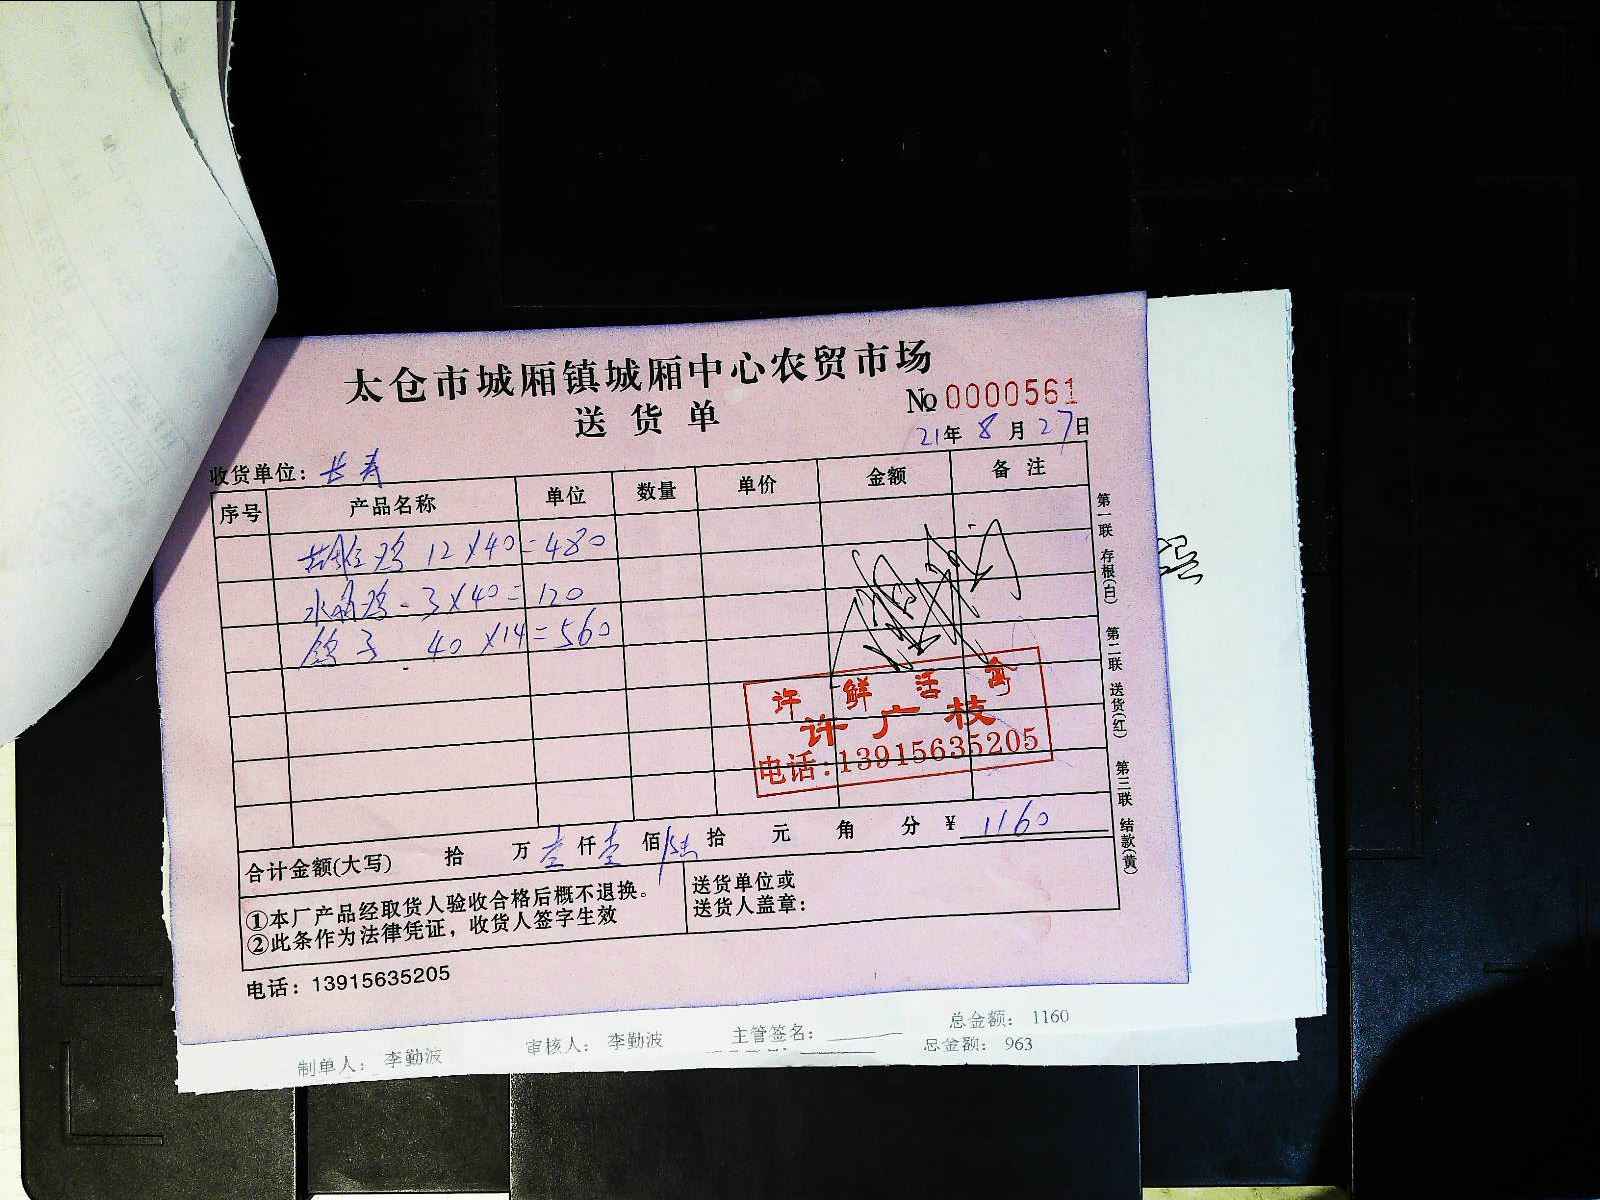 太仓市城厢镇城厢中心农贸市场
送货单
No 0000561
21年 8月 27日
收货单位：长寿
序号 产品名称 单位 数量 单价 金额 备注
鸡 12×40=480
水 鸡 - 3×40=120
鸽子 40×14=560
许 鲜 活 禽
许广枝
电话:13915635205
合计金额(大写) 拾 万 壹 仟 壹 佰 陆 拾 元 角 分 ¥ 1160
①本厂产品经取货人验收合格后概不退换。
②此条作为法律凭证，收货人签字生效
送货单位或
送货人盖章：
电话：13915635205
第一联 存根(白) 第二联 送货(红) 第三联 结款(黄)
制单人： 李勤波 审核人： 李勤波 主管签名： 总金额： 1160
总金额： 963